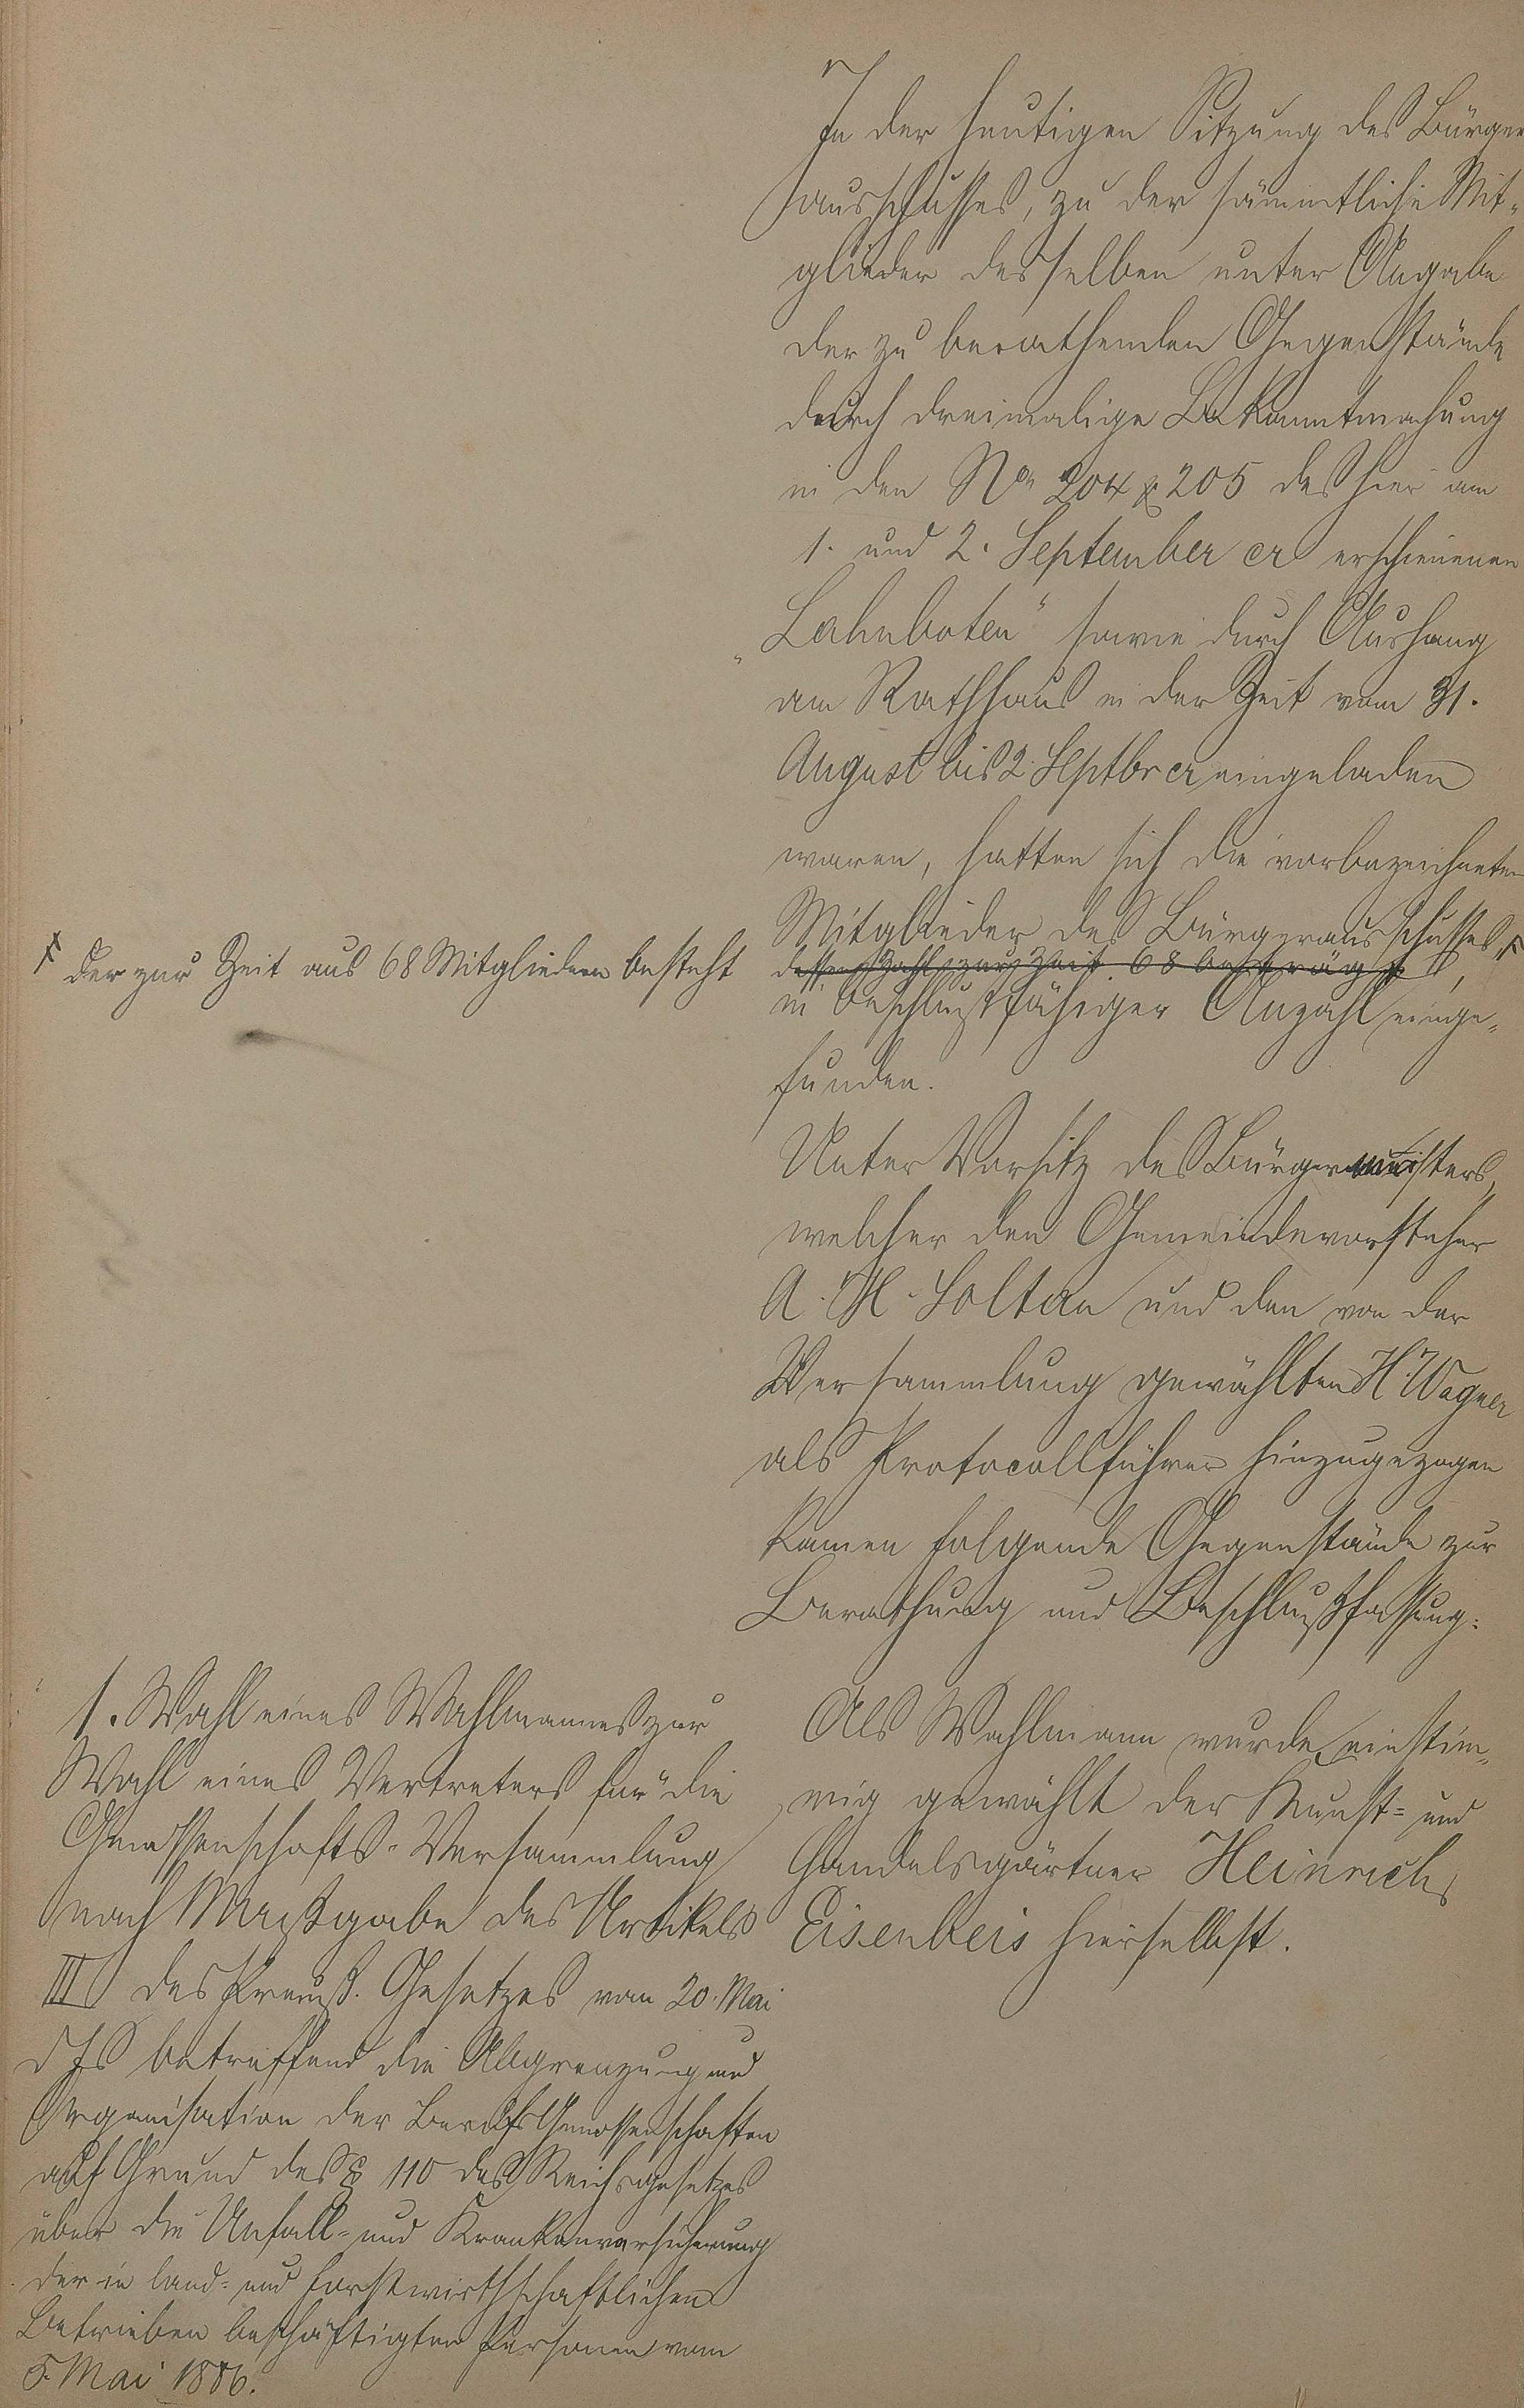 In der heutigen Sitzung des Bürger
ausschusses, zu der sämmtliche Mit-
glieder desselben unter Angabe
der zu berathenden Gegenstände
durch dreimalige Bekanntmachung
in den No 204 & 205 des hier am
1. und 2. September cr erschienenen
„Lahnboten“ sowie durch Aushang
am Rathhaus in der Zeit vom 31.
August bis 2. Septbr cr eingeladen
waren, hatten sich die vorbezeichneten
Mitglieder des Bürgerausschusses,
dessen Zahl zur Zeit 68 beträgt,
der zur Zeit aus 68 Mitgliedern besteht
in beschlußfähiger Anzahl einge-
funden.
Unter Vorsitz des Bürgermeisters,
welcher den Gemeindevorsteher
A. H. Soltan und den von der
Versammlung gewählten H. Wagner
als Protocollführer hinzugezogen
kamen folgende Gegenstände zur
Berathung und Beschlußfassung:
1. Wahl eines Wahlmannes zur
Wahl eines Vertreters für die
Genossenschafts-Versammlung
nach Maßgabe des Artikels
III des Preuß. Gesetzes vom 20. Mai
d Js betreffend die Abgrenzung und
Organisation der Berufsgenossenschaften
auf Grund des § 110 des Reichsgesetzes
über die Unfall- und Krankenversicherung
der in land- und forstwirthschaftlichen
Betrieben beschäftigten Personen vom
5. Mai 1886.
Als Wahlmann wurde einstim-
mig gewählt der Kunst- und
Handelsgärtner Heinrich
Eisenbeis hierselbst.